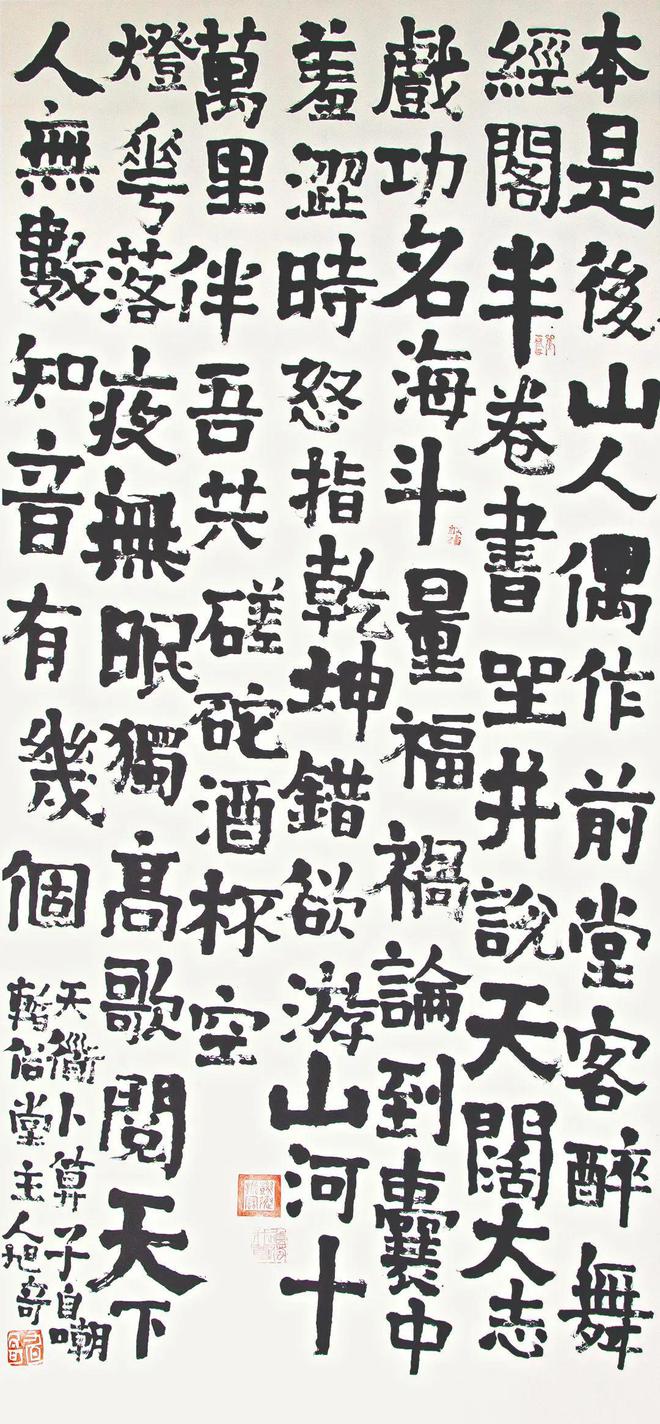 本是後山人偶作前堂客醉舞
經閣半卷書坐井說天闊大志
戲功名海斗量福禍論到囊中
羞澀時怒指乾坤錯欲游山河十
萬里伴吾共磋砣酒杯空
燈花落夜無眠獨髙歌閱天下
人無數知音有幾個
天卜算子自嘲
俗堂主人旭奇